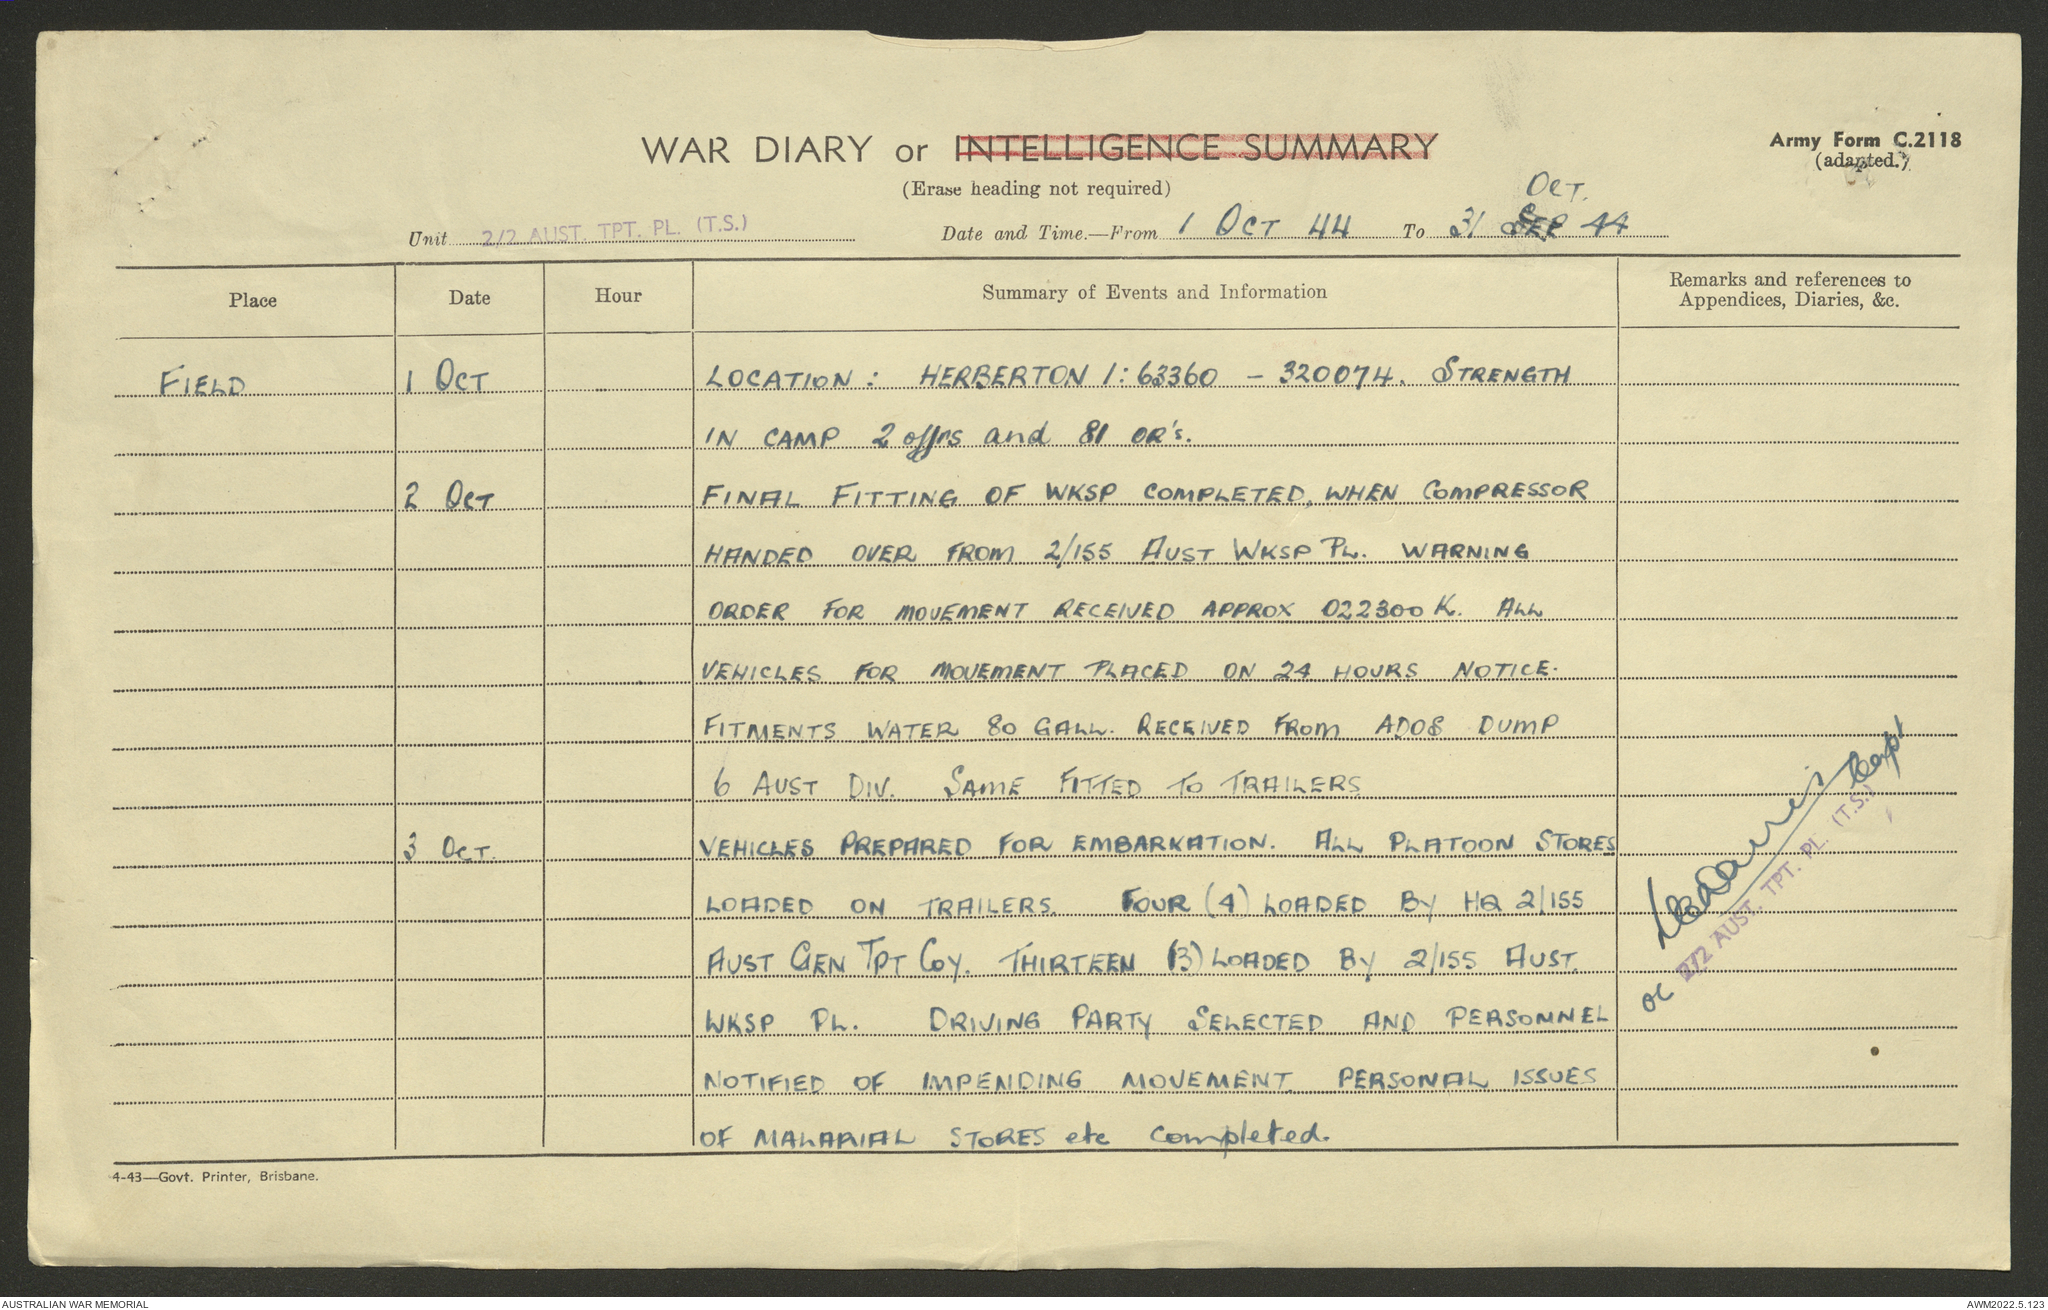 WAR DIARY or INTELLIGENCE SUMMARY
Army Form C.2118
(adapted.)
(Erase heading not required)
Oct.
Unit 2/2 AUST. TPT. PL. (T.S.) Date and Time.—From 1 OCT 44 To 31 SEP 44
Place Date Hour Summary of Events and Information Remarks and references to
Appendices, Diaries, &c.
FIELD 1 OCT LOCATION : HERBERTON 1:63360 - 320074. STRENGTH
IN CAMP 2 offrs and 81 OR's.
2 OCT FINAL FITTING OF WKSP COMPLETED, WHEN COMPRESSOR
HANDED OVER FROM 2/155 AUST WKSP PL. WARNING
ORDER FOR MOVEMENT RECEIVED APPROX 022300K. ALL
VEHICLES FOR MOVEMENT PLACED ON 24 HOURS NOTICE.
FITMENTS WATER 80 GALL. RECEIVED FROM ADOS DUMP
6 AUST DIV. SAME FITTED TO TRAILERS
3 OCT. VEHICLES PREPARED FOR EMBARKATION. ALL PLATOON STORES
LOADED ON TRAILERS. FOUR (4) LOADED BY HQ 2/155
AUST GEN TPT COY. THIRTEEN (13) LOADED BY 2/155 AUST.
WKSP PL. DRIVING PARTY SELECTED AND PERSONNEL
NOTIFIED OF IMPENDING MOVEMENT. PERSONAL ISSUES
OF MALARIAL STORES etc completed.
Capt
OC 2/2 AUST. TPT. PL. (T.S.)
4-43—Govt. Printer, Brisbane.
AUSTRALIAN WAR MEMORIAL
AWM2022.5.123